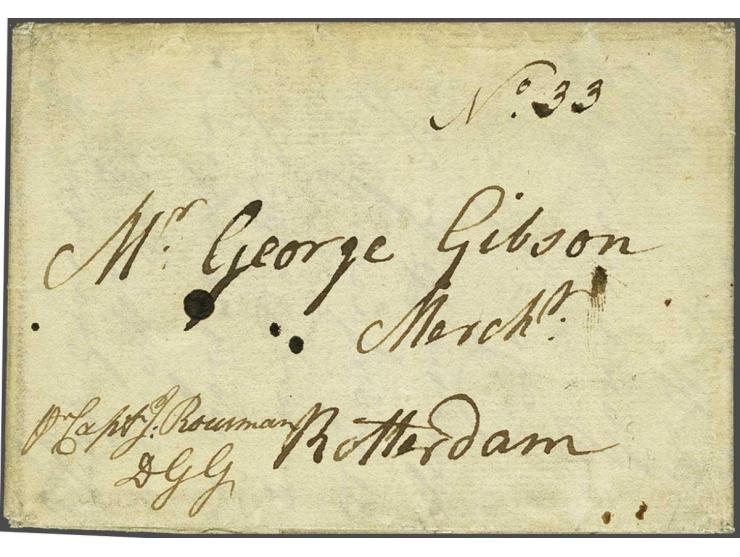 No. 33
Mr. George Gibson
Mercht.
pr Capt J: Rouwman
Rotterdam
DGG